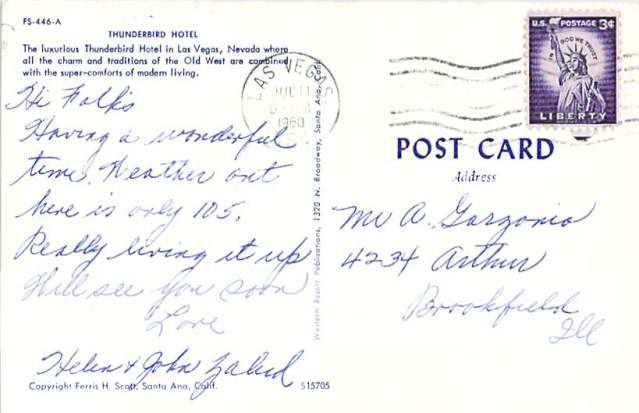 FS-446-A
THUNDERBIRD HOTEL
The luxurious Thunderbird Hotel in Las Vegas, Nevada where
all the charm and traditions of the Old West are combined
with the super-comforts of modern living.
Hi Folks
Having a wonderful
time. Weather out
here is only 105.
Really living it up
Will see you soon
Love
Helen & John
Copyright Ferris H. Scott, Santa Ana, Calif.
S15705
Western Resort Publications, 1320 N. Broadway, Santa Ana, Calif.
LAS VEGAS
JUL 11
1960
U.S. POSTAGE 3¢
IN GOD WE TRUST
LIBERTY
POST CARD
Address
Mr A. Garzonio
4234 Arthur
Brookfield
Ill